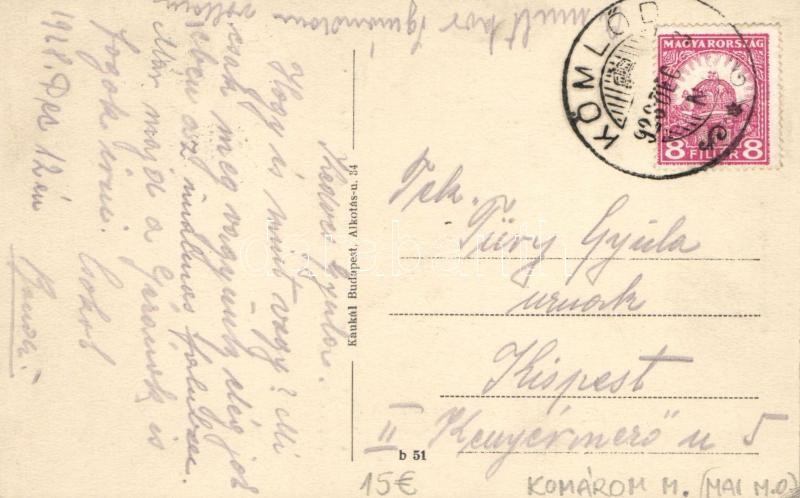 Kedves Gyula.
Hogy is mint vagy? Mi
csak meg vagyunk elég jól
ebben az unalmas faluban.
Már majd a Garanok is
fogok irni. Csókol
1928. Dec 12 én
mult kor
KÖMLŐD
928 DEC
MAGYARORSZÁG
8 FILLÉR 8
Tek.
Türy Gyula
urnak
Kispest
II Kenyérmező u 5
Kaukál Budapest, Alkotás-u. 34
b 51
15€
KOMÁROM M. (MAI M.O)
darabanth